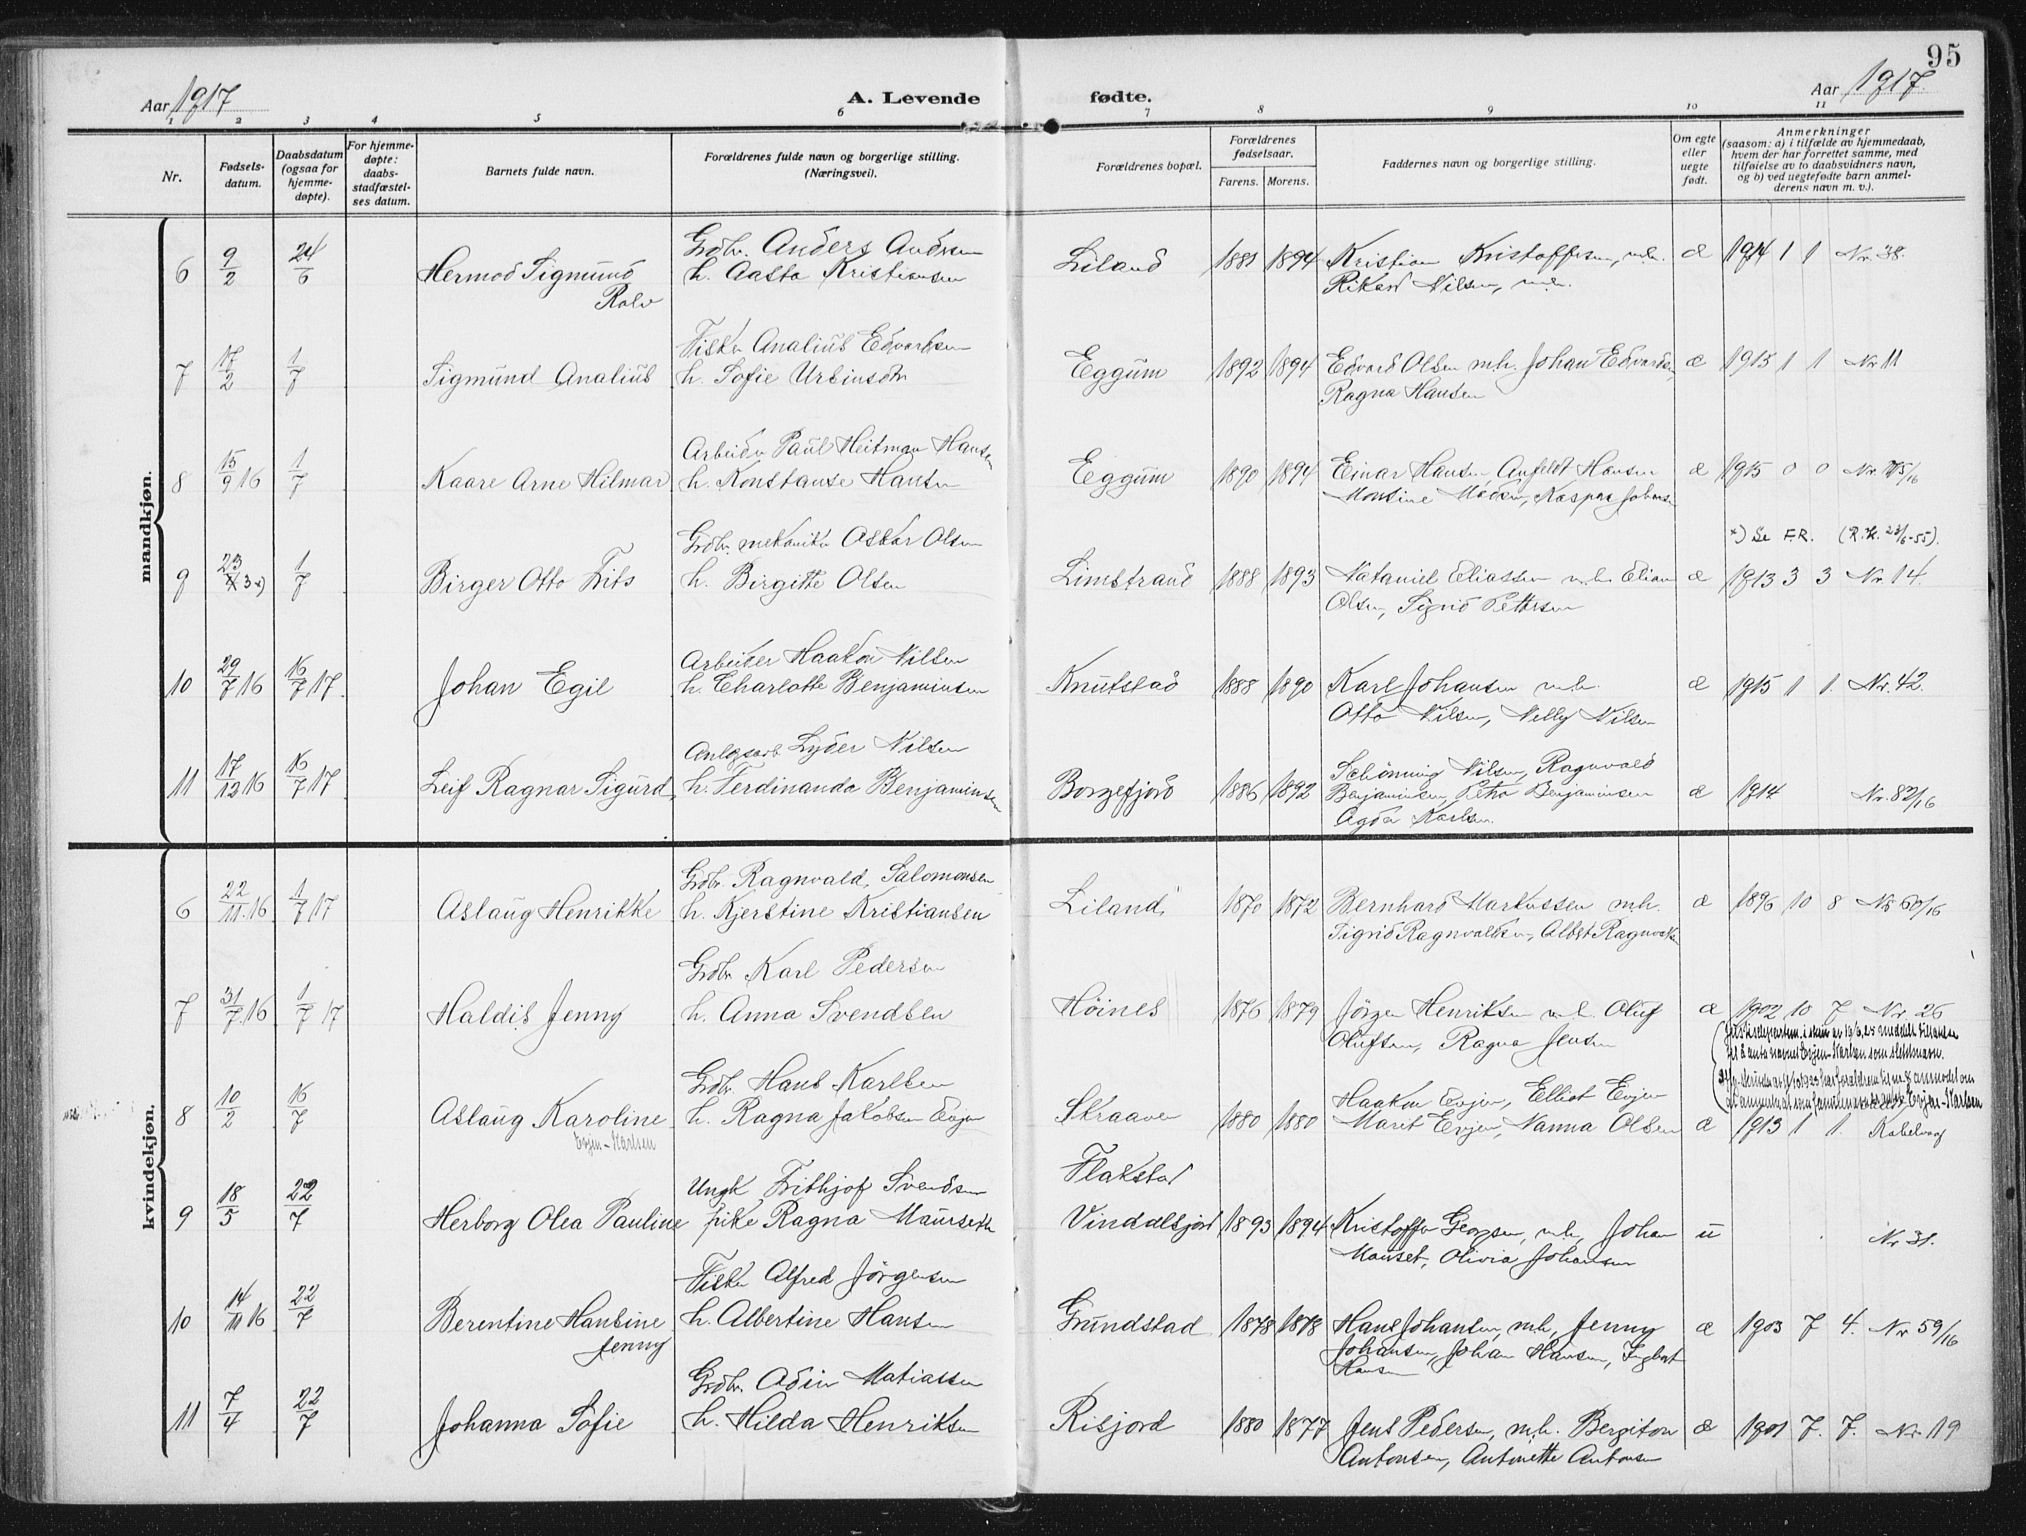 95
Aar 1917
A. Levende fødte.
Aar 1917.
1 2 3 4 5 6 7 8 9 10 11
Nr.
Fødsels-datum.
Daabsdatum (ogsaa for hjemme-døpte).
For hjemme-døpte: daabs-stadfæstel-ses datum.
Barnets fulde navn.
Forældrenes fulde navn og borgerlige stilling. (Næringsvei).
Forældrenes bopæl.
Forældrenes fødselsaar.
Farens. Morens.
Faddernes navn og borgerlige stilling.
Om egte eller uegte født.
Anmerkninger (saasom: a) i tilfælde av hjemmedaab, hvem der har forrettet samme, med tilføielse av to daabsvidners navn, og b) ved uegtefødte barn anmel-derens navn m. v.).
mandkjøn.
6 9/2 24/6 Hermod Sigmund Gdbr. Anders Andersen Liland 1881 1894 Kristian Kristoffersen, m.h. æ 1914 1 1 Nr. 38.
Rolv h. Aasta Kristiansen Rikard Nilsen, m.h.
7 17/2 1/7 Sigmund Analius Fisker Analius Edvardsen Eggum 1892 1894 Edvard Olsen m.h. Johan Edvardsen, æ 1915 1 1 Nr 11
h. Sofie Urbinsdtr Ragna Hansen
8 15/9 16 1/7 Kaare Arne Hilmar Arbeider Paul Heitman Hansen Eggum 1890 1894 Einar Hansen, Anfeldt Hansen æ 1915 0 0 Nr. 75/16
h. Konstanse Hansen Montine Madsen, Kaspara Johansen
*) Se F.R. (R.K. 23/6-55).
9 23/3 *) 1/7 Birger Otto Frits Gdbr. mekaniker Oskar Olsen Limstrand 1888 1893 Nataniel Eliassen m.h. Elian æ 1913 3 3 Nr. 14.
h. Birgitte Olsen Olsen, Sigrid Pettersen
10 29/7 16 16/7 17. Johan Egil Arbeider Haakon Nilsen Knutstad 1888 1890 Karl Johansen m.h. æ 1915 1 1. Nr. 42.
h. Charlotte Benjaminsen Otto Nilsen, Nelly Nilsen
11 17/12 16 16/7 17 Leif Ragnar Sigurd, Anlegsarb. Lyder Nilsen Borgefjord 1886 1892 Schönning Nilsen, Ragnvald
h. Ferdinanda Benjaminsen Benjaminsen, Petra Benjaminsen æ 1914 Nr. 82/16
Agda Karlsen.
kvindekjøn.
6 22/11. 16 1/7 17 Aslaug Henrikke Gdbr. Ragnvald Salomonsen Liland 1870 1872 Bernhard Markussen m.h. æ 1896 10 8 Nr 60/16
h. Kjerstine Kristiansen Sigrid Ragnvaldsen, Albert Ragnvaldsen
7 31/7. 16 1/7 17 Haldis Jenny Gdbr Karl Pedersen Höines 1876 1879 Jörgen Henriksen m.h. Oluf æ 1902 10 7 Nr. 26
h. Anna Svendsen Olufsen, Ragna Jensen
8 10/2 16/7 Aslaug Karoline Gdbr. Hans Karlsen Skraaven 1880 1880 Haakon Evjen, Elliot Evjen
h. Ragna Jakobsen Evjen Maret Evjen, Nanna Olsen æ 1913 1 1. Kabelvaag
Evjen-Karlsen
9 18/5 22/7 Herborg Olea Pauline Ungk Frithjof Svendsen Flakstad
pike Ragna Maurseth Vindalsfjord 1893 1894 Kristoffer Georgsen, m.h, Johan u Nr 31.
Mauset, Olivia Johansen
10 14/11 16 22/7 Berentine Hansine Fisker Alfred Jörgensen Grundstad 1878 1878 Hans Johansen, m.h, Jenny æ 1903 7 4. Nr 59/16
Jenny h. Albertine Hansen Johansen, Johan Hansen, Ingbert Hansen
11 7/4 22/7 Johanna Sofie Gdbr. Adin Matiassen Risjord 1880 1877 Jens Pedersen, m.h. Bergiton æ 1901 7. 7. Nr 19
h. Hilda Henriksen Antonsen, Antonette Antonsen